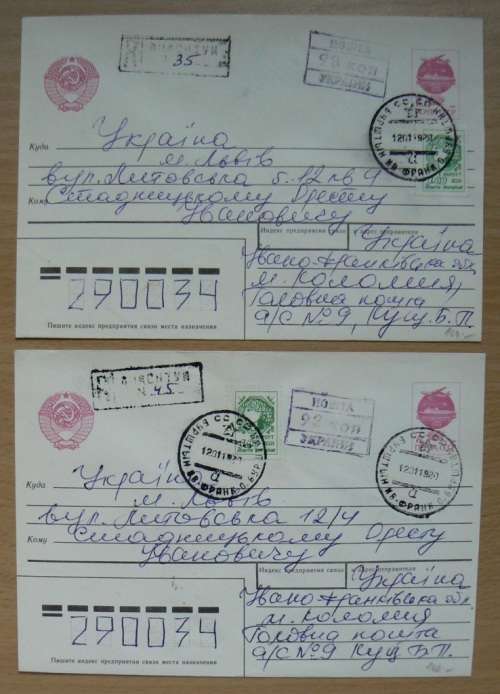 35
ПОШТА
92 коп
УКРАЇНИ
120119920
а
Куда
Україна
м. Львів
вул. Литовська б. 12 кв 4
Кому
Стадницькому Оресту
Івановичу
Индекс предприятия связи
и адрес отправителя
Україна
Івано-Франківська обл.
м. Коломия,
Головна пошта
а/с №9, Кущ Б.П.
290034
Пишите индекс предприятия связи места назначения
45
ПОШТА
92 коп
УКРАЇНИ
а
Куда
Україна
м. Львів
вул. Литовська 12/4
Кому
Стадницькому Оресту
Івановичу
Индекс предприятия связи
и адрес отправителя
Україна
Івано-Франківська обл.
м. Коломия
Головна пошта
а/с №9 Кущ Б.П.
290034
Пишите индекс предприятия связи места назначения